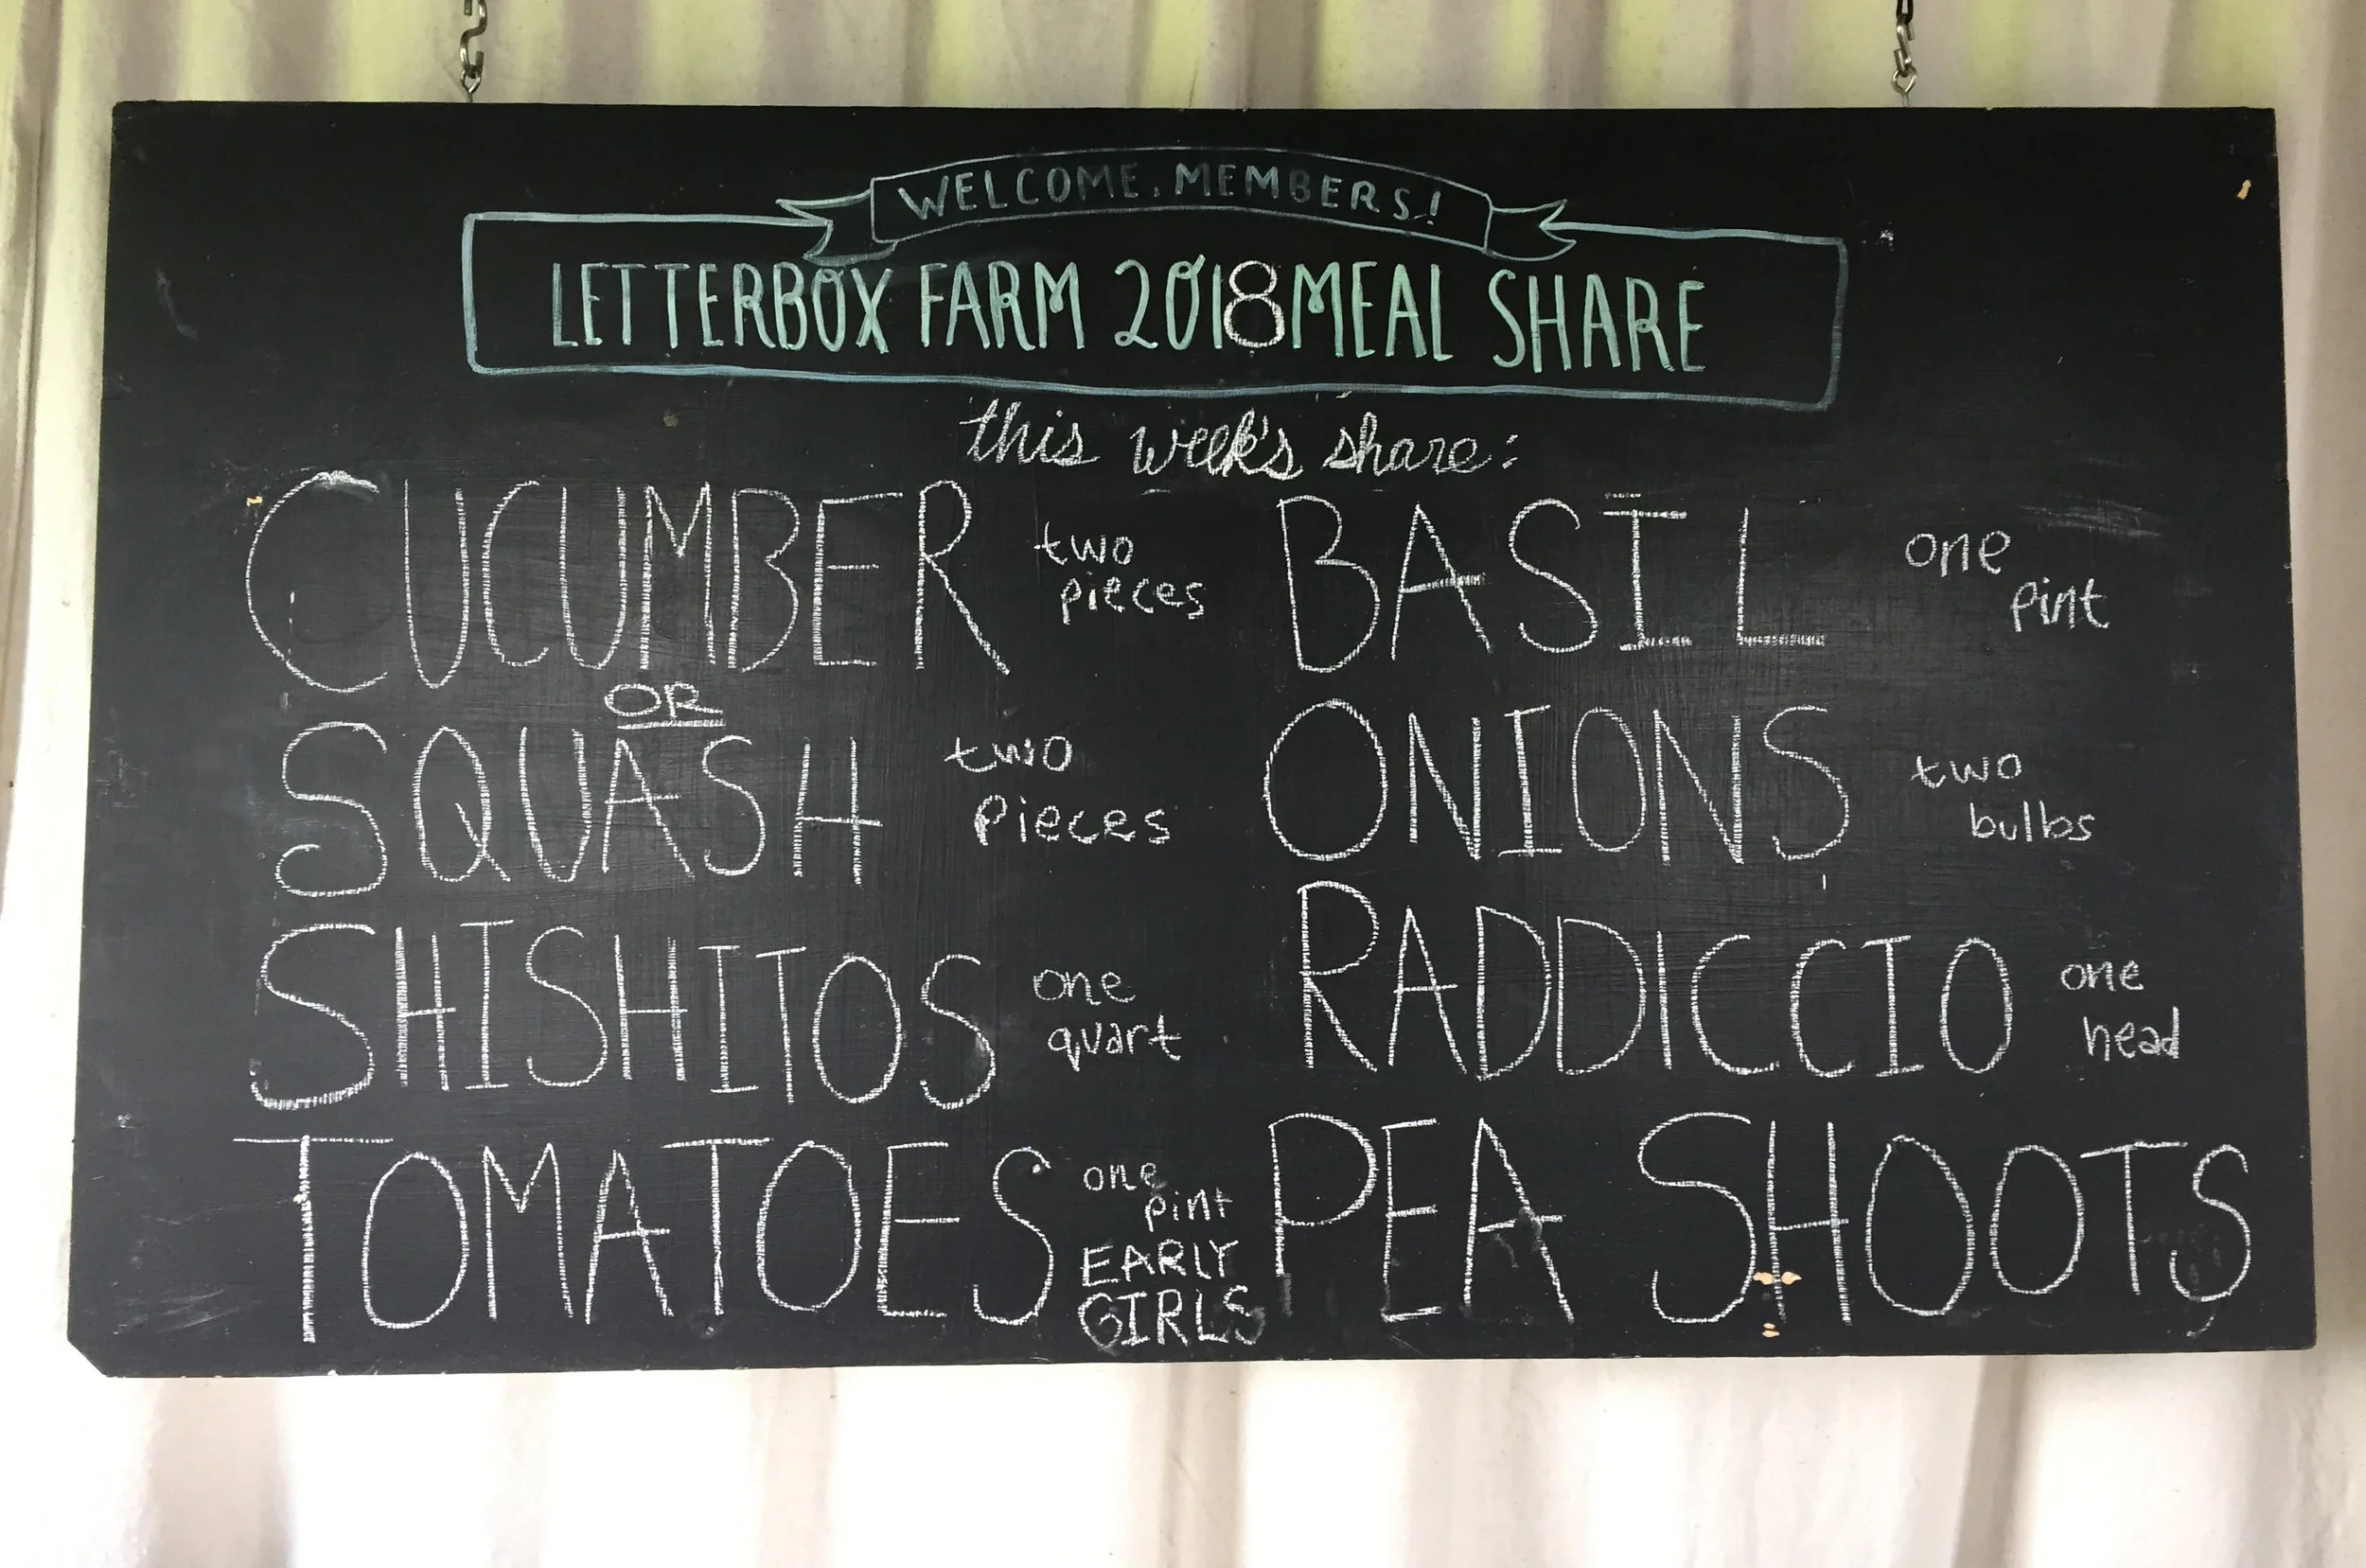 WELCOME, MEMBERS!
LETTERBOX FARM 2018 MEAL SHARE
this week's share:
CUCUMBER two pieces
OR
SQUASH two pieces
SHISHITOS one quart
TOMATOES one pint EARLY GIRLS
BASIL one pint
ONIONS two bulbs
RADDICCIO one head
PEA SHOOTS